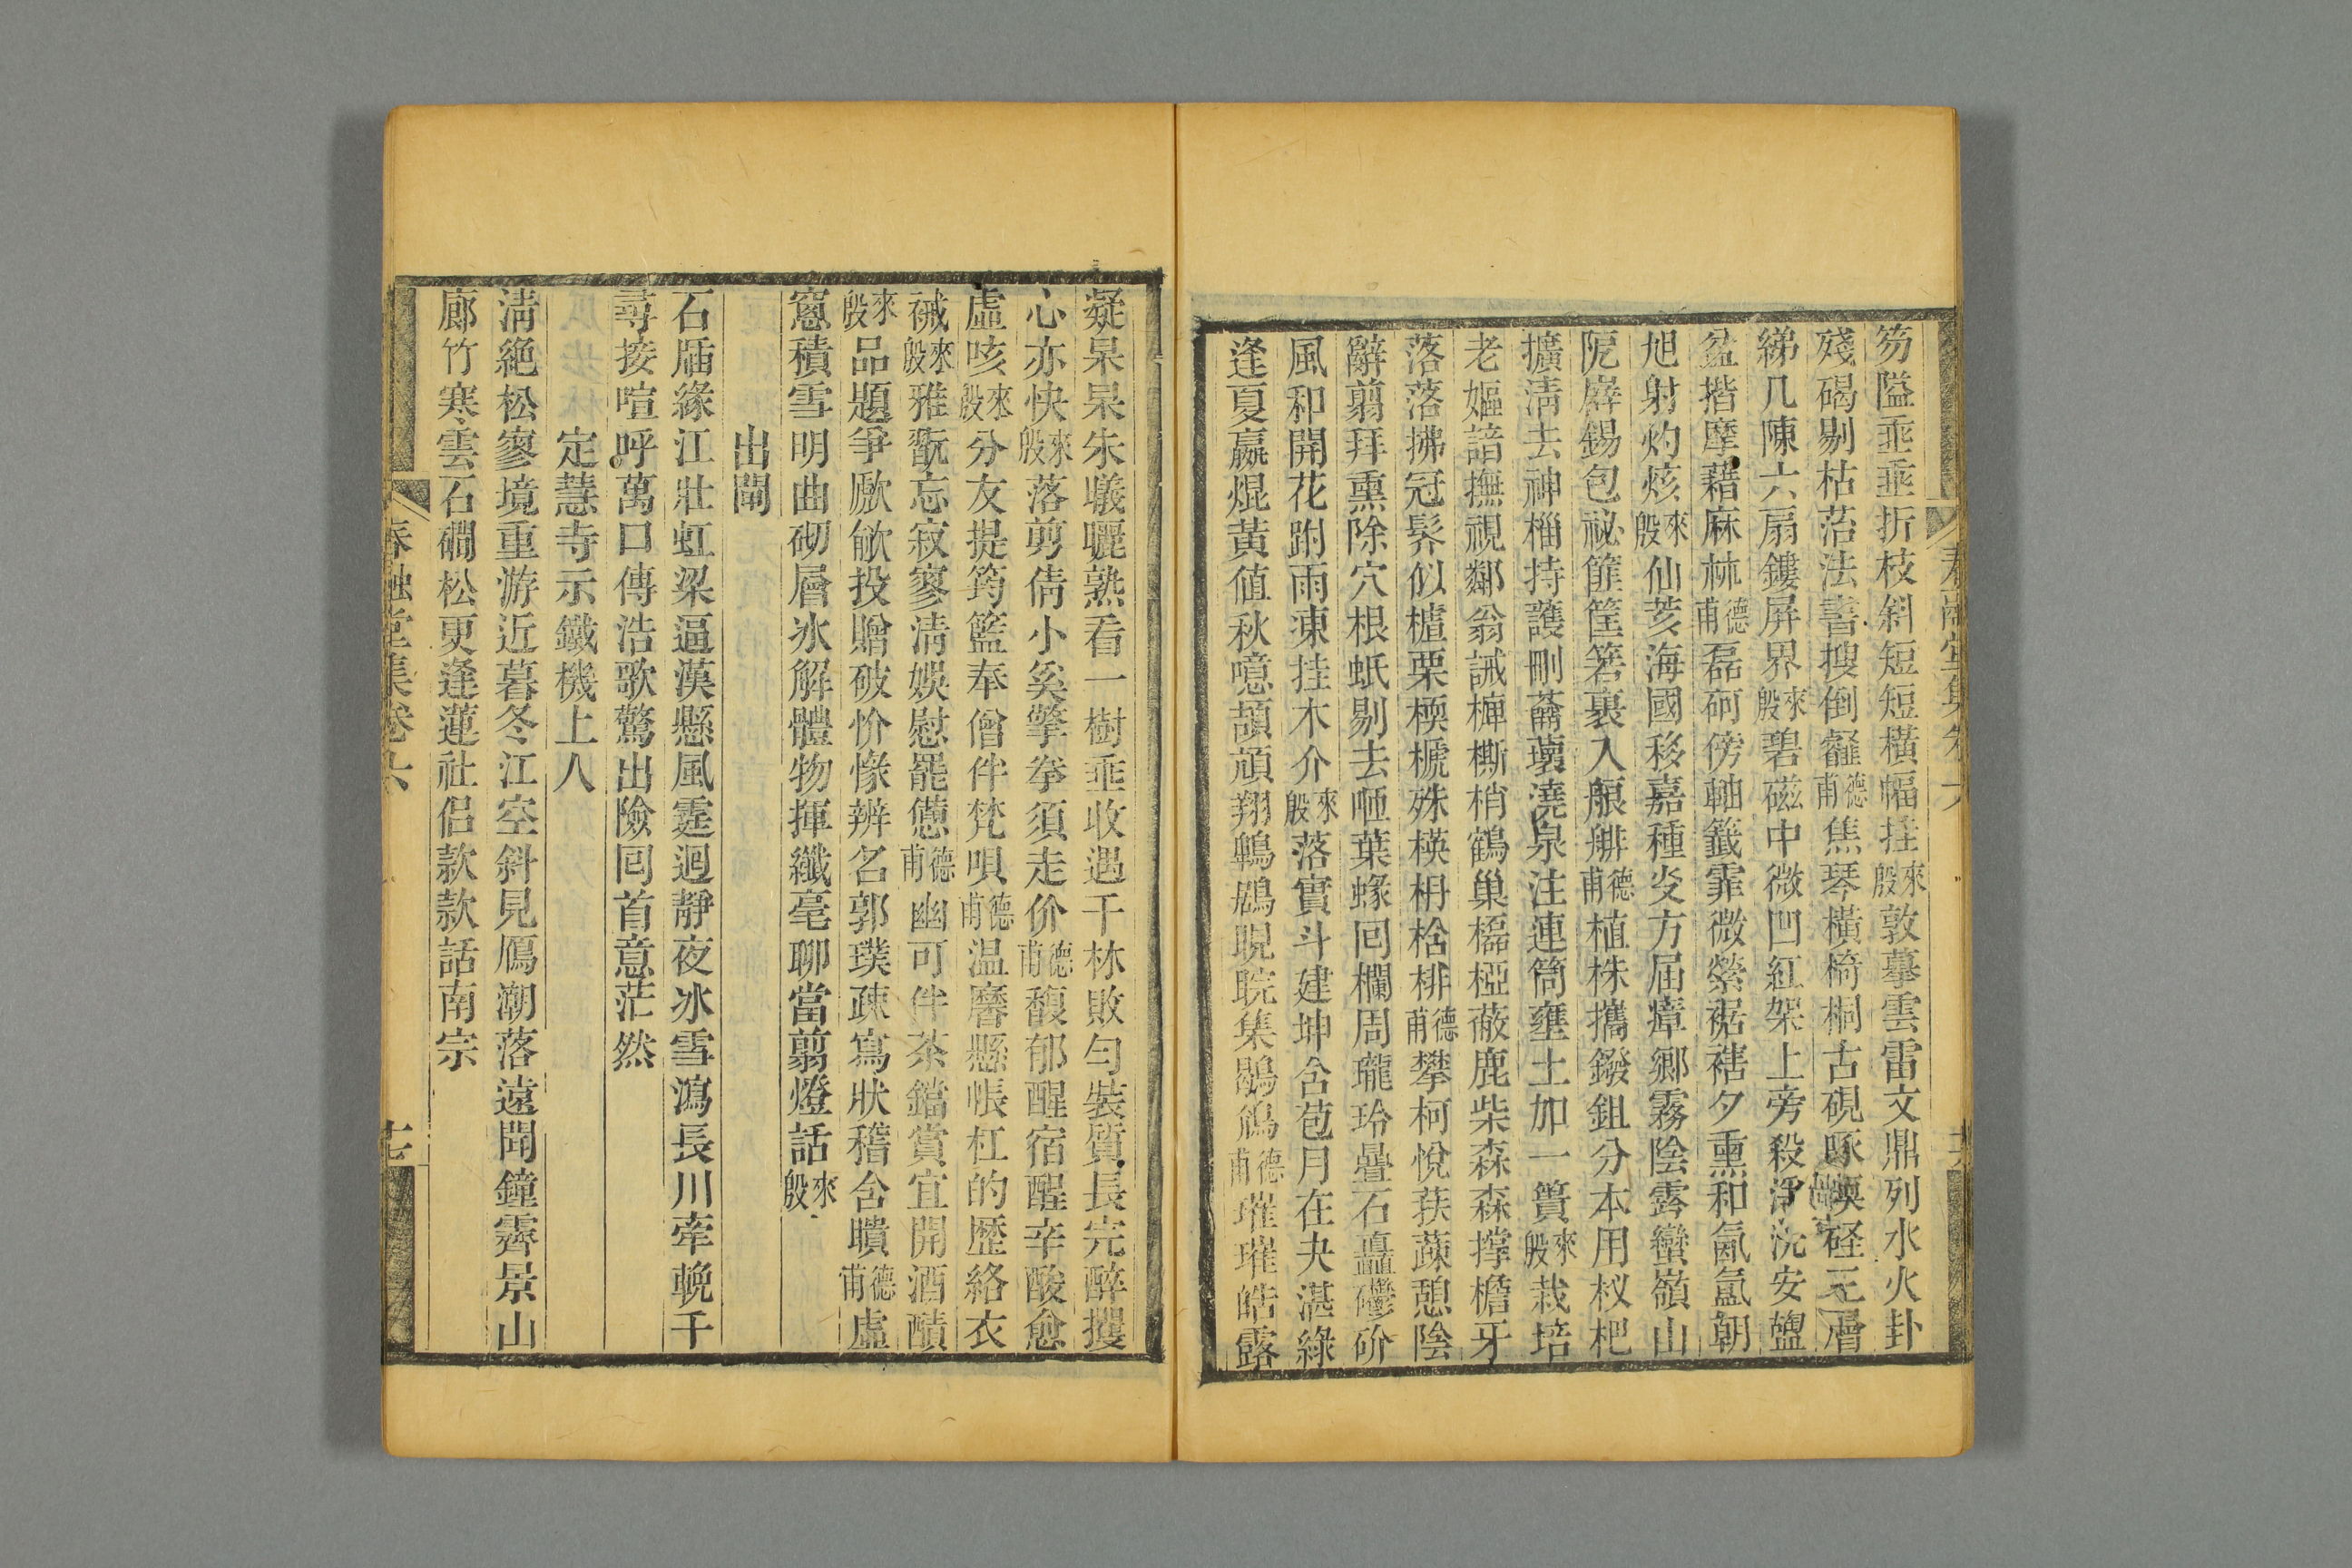 笏隘垂垂折枝斜短短橫幅挂來殷敦摹雲雷文鼎列水火卦
殘碣剔枯萡法書搜倒龕德甫焦琴橫椅桐古硯啄硬砭三層
綈几陳六扇鏤屏界來殷碧磁中微凹紅架上旁殺淨洗安盬
盆揩摩藉麻枾德甫磊砢傍軸籤霏微縈裾褚夕熏和氤氳朝
旭射灼烗來殷仙荄海國移嘉種炎方届瘴鄉霧陰雺蠻嶺山
阨廦錫包祕篚筐箬裹入艆艀德甫植株攜鏺鉏分本用杈杷
擴淸去神椔持護刪薾壞澆泉注連筒壅土加一簣來殷栽培
老嫗諳撫視鄰翁誡樿㯕梢鶴巢櫑椏蔽鹿柴森森撑檐牙
落落拂冠髹似樝栗橈榹殊楧枏梒棑德甫攀柯悅扶蔬憩陰
辭翦拜熏除穴根蚔剔去咂葉蝝回欄周瓏玲疊石矗礸砎
風和開花跗雨涷挂木介來殷落實斗建坤含苞月在夬湛綠
逢夏嬴焜黃値秋噫頡頏翔鶤鷃睍睆集鶗鴂德甫璀璀皓露
凝杲杲朱曦曬熟看一樹垂收遇千林敗勻裝質長完醉攫
心亦快來殷落剪倩小奚擎拳須走价德甫馥郁醒宿酲辛酸愈
虛咳來殷分友提筠籃奉僧伴梵唄德甫温黁懸帳杠的歷絡衣
裓來殷雅翫忘寂寥淸娛慰罷憊德甫幽可伴茶鐺賞宜開酒醆
來殷品題爭歔欱投贈破忦惸辨名郭璞疎寫狀稽含瞶德甫虛
窻積雪明曲砌層冰解體物揮纖毫聊當翦燈話來殷
出閘
石牐緣江壯虹梁逼漢懸風霆迴靜夜冰雪瀉長川牽輓千
尋接喧呼萬口傳浩歌驚出險回首意茫然
定慧寺示鐵機上人
淸絕松寥境重游近暮冬江空斜見鴈潮落遠聞鐘霽景山
廊竹寒雲石磵松更逢蓮社侣款款話南宗
春融堂集卷六